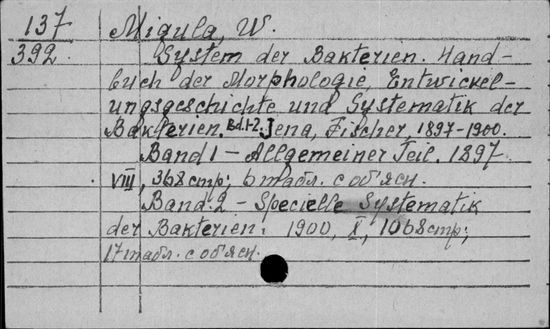 137 Migula, W.
392 System der Bakterien. Hand-
buch der Morphologie, Entwickel-
ungsgeschichte und Systematik der
Bakterien. Bd.1-2. Jena, Fischer, 1897-1900.
Band 1 – Allgemeiner Teil. 1897
VIII, 368 стр; 6 табл. с об'ясн.
Band 2 – Specielle Systematik
der Bakterien. 1900, X, 1068 стр;
17 табл. с об'ясн.